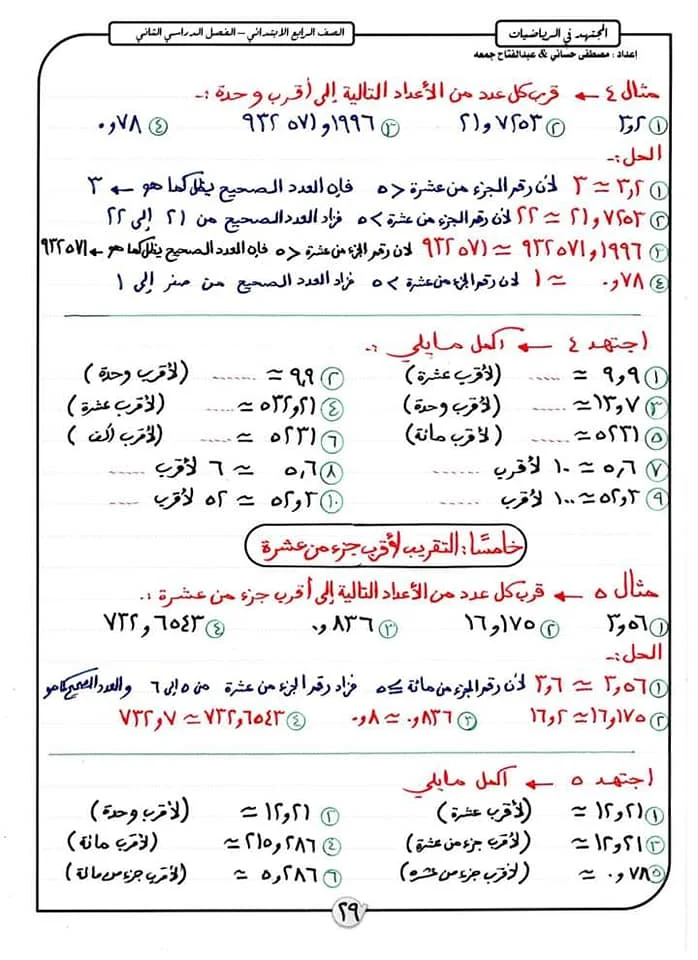 المجتهد في الرياضيات
الصف الرابع الابتدائي – الفصل الدراسي الثاني
إعداد : مصطفى حساني & عبدالفتاح جمعه
مثال ٤ ← قرب كل عدد من الأعداد التالية إلى أقرب وحدة :-
① ٣,٢ ② ٢١,٧٢٥٣ ③ ٩٣٢٥٧١,١٩٩٦ ④ ٠,٧٨
الحل :-
① ٣,٢ ≃ ٣ لأن رقم الجزء من عشرة < ٥ فإن العدد الصحيح يظل كما هو ← ٣
② ٢١,٧٢٥٣ ≃ ٢٢ لأن رقم الجزء من عشرة > ٥ فزاد العدد الصحيح من ٢١ إلى ٢٢
③ ٩٣٢٥٧١,١٩٩٦ ≃ ٩٣٢٥٧١ لأن رقم الجزء من عشرة < ٥ فإن العدد الصحيح يظل كما هو ← ٩٣٢٥٧١
④ ٠,٧٨ ≃ ١ لأن رقم الجزء من عشرة > ٥ فزاد العدد الصحيح من صفر إلى ١
اجتهد ٤ ← أكمل ما يلي :-
① ٩,٩ ≃ ..... (لأقرب عشرة) ② ٩,٩ ≃ ....... (لأقرب وحدة)
③ ١٣,٧ ≃ ..... (لأقرب وحدة) ④ ٥٣٢,٢١ ≃ ..... (لأقرب عشرة)
⑤ ٥٢٣١ ≃ ..... (لأقرب مائة) ⑥ ٥٢٣١ ≃ ..... (لأقرب ألف)
⑦ ٥,٦ ≃ ١٠ لأقرب ....... ⑧ ٥,٦ ≃ ٦ لأقرب .....
⑨ ٥٢,٣ ≃ ١٠٠ لأقرب ..... ⑩ ٥٢,٣ ≃ ٥٢ لأقرب .....
خامسًا : التقريب لأقرب جزء من عشرة
مثال ٥ ← قرب كل عدد من الأعداد التالية إلى أقرب جزء من عشرة :.
① ٣,٥٦ ② ١٦,١٧٥ ③ ٠,٨٣٦ ④ ٧٣٢,٦٥٤٣
الحل :-
① ٣,٥٦ ≃ ٣,٦ لأن رقم الجزء من مائة ≥ ٥ فزاد رقم الجزء من عشرة من ٥ إلى ٦ والعدد الصحيح كما هو
② ١٦,١٧٥ ≃ ١٦,٢ ③ ٠,٨٣٦ ≃ ٠,٨ ④ ٧٣٢,٦٥٤٣ ≃ ٧٣٢,٧
اجتهد ٥ ← أكمل ما يلي
① ١٢,٢١ ≃ (لأقرب عشرة) ② ١٢,٢١ ≃ (لأقرب وحدة)
③ ١٢,٢١ ≃ (لأقرب جزء من عشرة) ④ ٢١٥,٢٨٦ ≃ (لأقرب مائة)
⑤ ٠,٧٨ ≃ (لأقرب جزء من عشرة) ⑥ ٥,٢٨٦ ≃ (لأقرب جزء من مائة)
٢٩